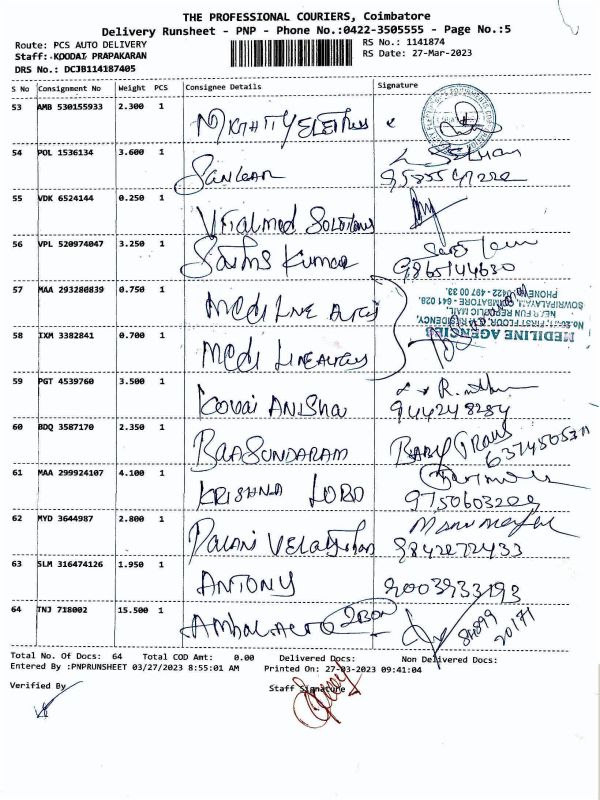 THE PROFESSIONAL COURIERS, Coimbatore
Delivery Runsheet - PNP - Phone No.:0422-3505555 - Page No.:5
Route: PCS AUTO DELIVERY RS No.: 1141874
Staff: KOODAI PRAPAKARAN RS Date: 27-Mar-2023
DRS No.: DCJB114187405
S No Consignment No Weight PCS Consignee Details Signature
53 AMB 530155933 2.300 1
54 POL 1536134 3.600 1 SANKAR
55 VDK 6524144 0.250 1 SOLUTIONS
56 VPL 520974047 3.250 1 Kumar
9865144630
57 MAA 293280839 0.750 1 MEDILINE
58 IXM 3382841 0.700 1 MEDI
MEDILINE AGENCIES
No.26-11, FIRST FLOOR, RESIDENCY,
NEAR FUN REPUBLIC MALL,
SOWRIPALAYAM, COIMBATORE - 641 028.
PHONE: 0422-497 00 33.
59 PGT 4539760 3.500 1 KOVAI ANISHA
944248284
60 BDQ 3587170 2.350 1 BAASUNDARAM BABY TRANS
61 MAA 299924107 4.100 1 KRISHNA LORD
9750603209
62 MYD 3644987 2.800 1 PALANI
9842872433
63 SLM 316474126 1.950 1 ANTONY 9003933193
64 TNJ 718002 15.500 1
84899
20171
Total No. Of Docs: 64 Total COD Amt: 0.00 Delivered Docs: Non Delivered Docs:
Entered By :PNPRUNSHEET 03/27/2023 8:55:01 AM Printed On: 27-03-2023 09:41:04
Verified By Staff Signature